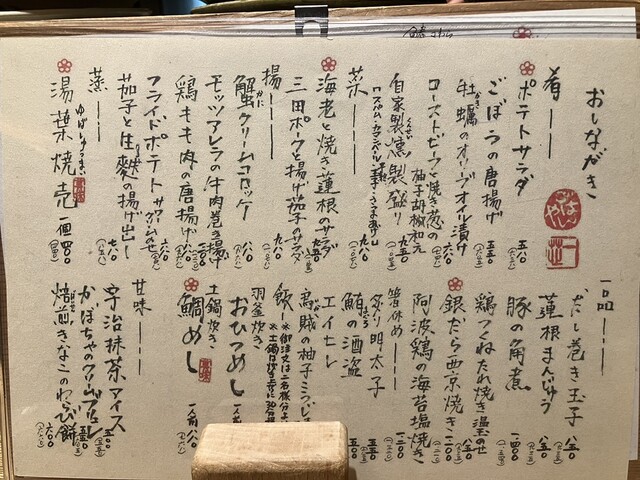 おしながき
肴
ポテトサラダ 五八〇
ごぼうの唐揚げ 五五〇
牡蠣のオリーブオイル漬け
ローストビーフと焼き葱の
柚子胡椒和え
自家製燻製盛り 九五〇
菜
海老と焼き蓮根のサラダ 九五〇
三田ポークと揚げ茄子のサラダ
揚
蟹クリームコロッケ
モッツァレラの牛肉巻き揚げ
鶏もも肉の唐揚げ
フライドポテト
茄子と生麩の揚げ出し 七八〇
蒸
湯葉焼売 一個 四〇〇
一品
だし巻き玉子 八五〇
蓮根まんじゅう 八五〇
豚の角煮 一四〇〇
鶏つくねたれ焼き温玉のせ
銀だら西京焼き 一二〇〇
阿波鶏の海苔塩焼き 一二〇〇
箸休め
炙り明太子
鮪の酒盗 五五〇
エイヒレ 五〇〇
烏賊の柚子
飯
羽釜炊き
おひつめし
土鍋炊き
鯛めし
甘味
宇治抹茶アイス 五〇〇
かぼちゃのクリームブリュレ
焙煎きなこのわらび餅 六〇〇